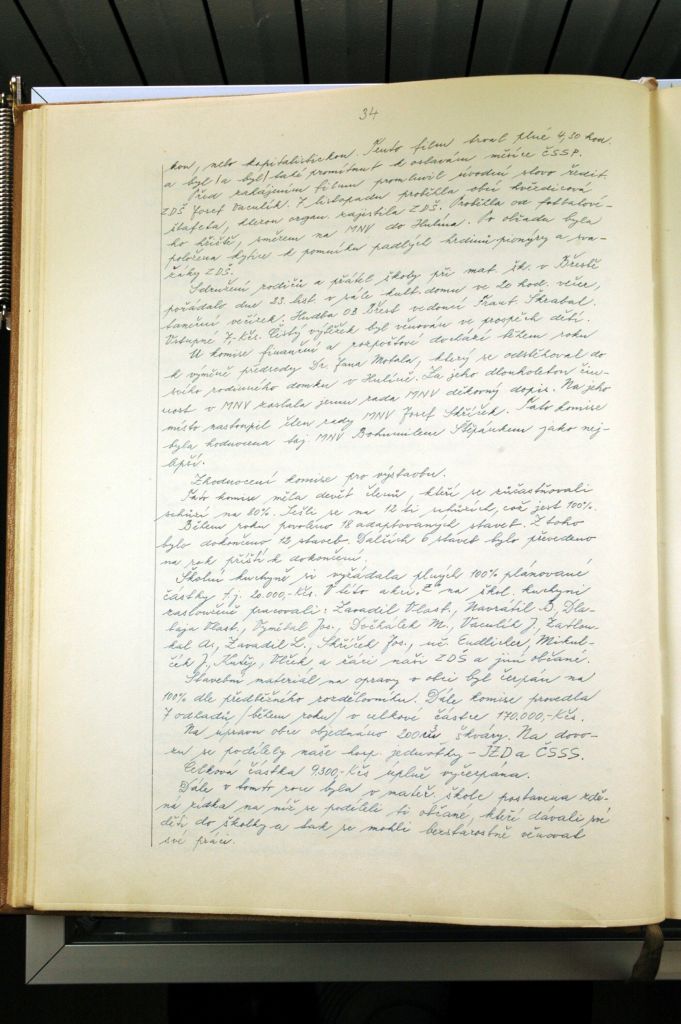 34
kou, nebo kapitalistickou. Tento film trval plné 4,30 hod.
a byl /a byl/ také promítnut k oslavám měsíce ČSSP.
Před zahájením filmu promluvil úvodní slovo ředit.
ZDŠ Josef Vaculík. 7. listopadu proběhla obcí
štafeta, kterou organ. zajistila ZDŠ. Probíhla od fotbalové-
ho hřiště, směrem na MNV do Hulína. Po obřadu byla
položena kytice k pomníku padlých hrdinů pionýry a sva-
žáky ZDŠ.
Sdružení rodičů a přátel školy při mat. šk. v Břestě
pořádalo dne 23. list. v sále kult. domu ve 20 hod. večer,
taneční večírek. Hudba OB Břest vedoucí Frant Skrabal.
Vstupné 7,- Kčs. Čistý výtěžek byl věnován ve prospěch dětí.
U komise finanční a rozpočtové dochází během roku
k výměně předsedy Dr. Jana Motala, který se odstěhoval do
svého rodinného domku v Hulíně. Za jeho dlouholetou čin-
nost v MNV zaslala jemu rada MNV děkovný dopis. Na jeho
místo nastoupil člen rady MNV Josef Skříček. Tato komise
byla hodnocena taj. MNV Bohumilem Štěpánkem jako nej-
lepší.
Zhodnocení komise pro výstavbu.
Tato komise měla devět členů, kteří se zúčastňovali
schůzí na 80%. Sešli se na 12ti schůzích, což jest 100%.
Během roku povoleno 18 adaptovaných staveb. Z toho
bylo dokončeno 12 staveb. Dalších 6 staveb bylo převedeno
na rok příští k dokončení.
Školní kuchyně si vyžádala plných 100% plánované
částky t.j. 20.000,- Kčs. V této akci "Z" na škol. kuchyni
zaslouženě pracovali: Zavadil Vlast., Navrátil B., Dla-
baja Vlast., Vymětal Jos., Dočkálek M., Vaculík J., Zatlou-
kal Ar., Zavadil L., Skříček Jos., uč. Endlicher, Mikul-
ček J., Kutý, Vlček a žáci naší ZDŠ a jiní občané.
Stavební materiál na opravy v obci byl čerpán na
100% dle předběžného rozdělovníku. Dále komise provedla
7 odhadů /během roku/ v celkové částce 170.000,- Kčs.
Na úpravu obce objednáno 200 škváry. Na dovo-
zu se podílely naše hosp. jednotky - JZD a ČSSS.
Celková částka 9.300,- Kčs úplně vyčerpána.
Dále v tomto roce byla v mateř. škole postavena zdě-
ná zídka na níž se podíleli ti občané, kteří dávali své
děti do školky a tak se mohli bezstarostně věnovat
své práci.